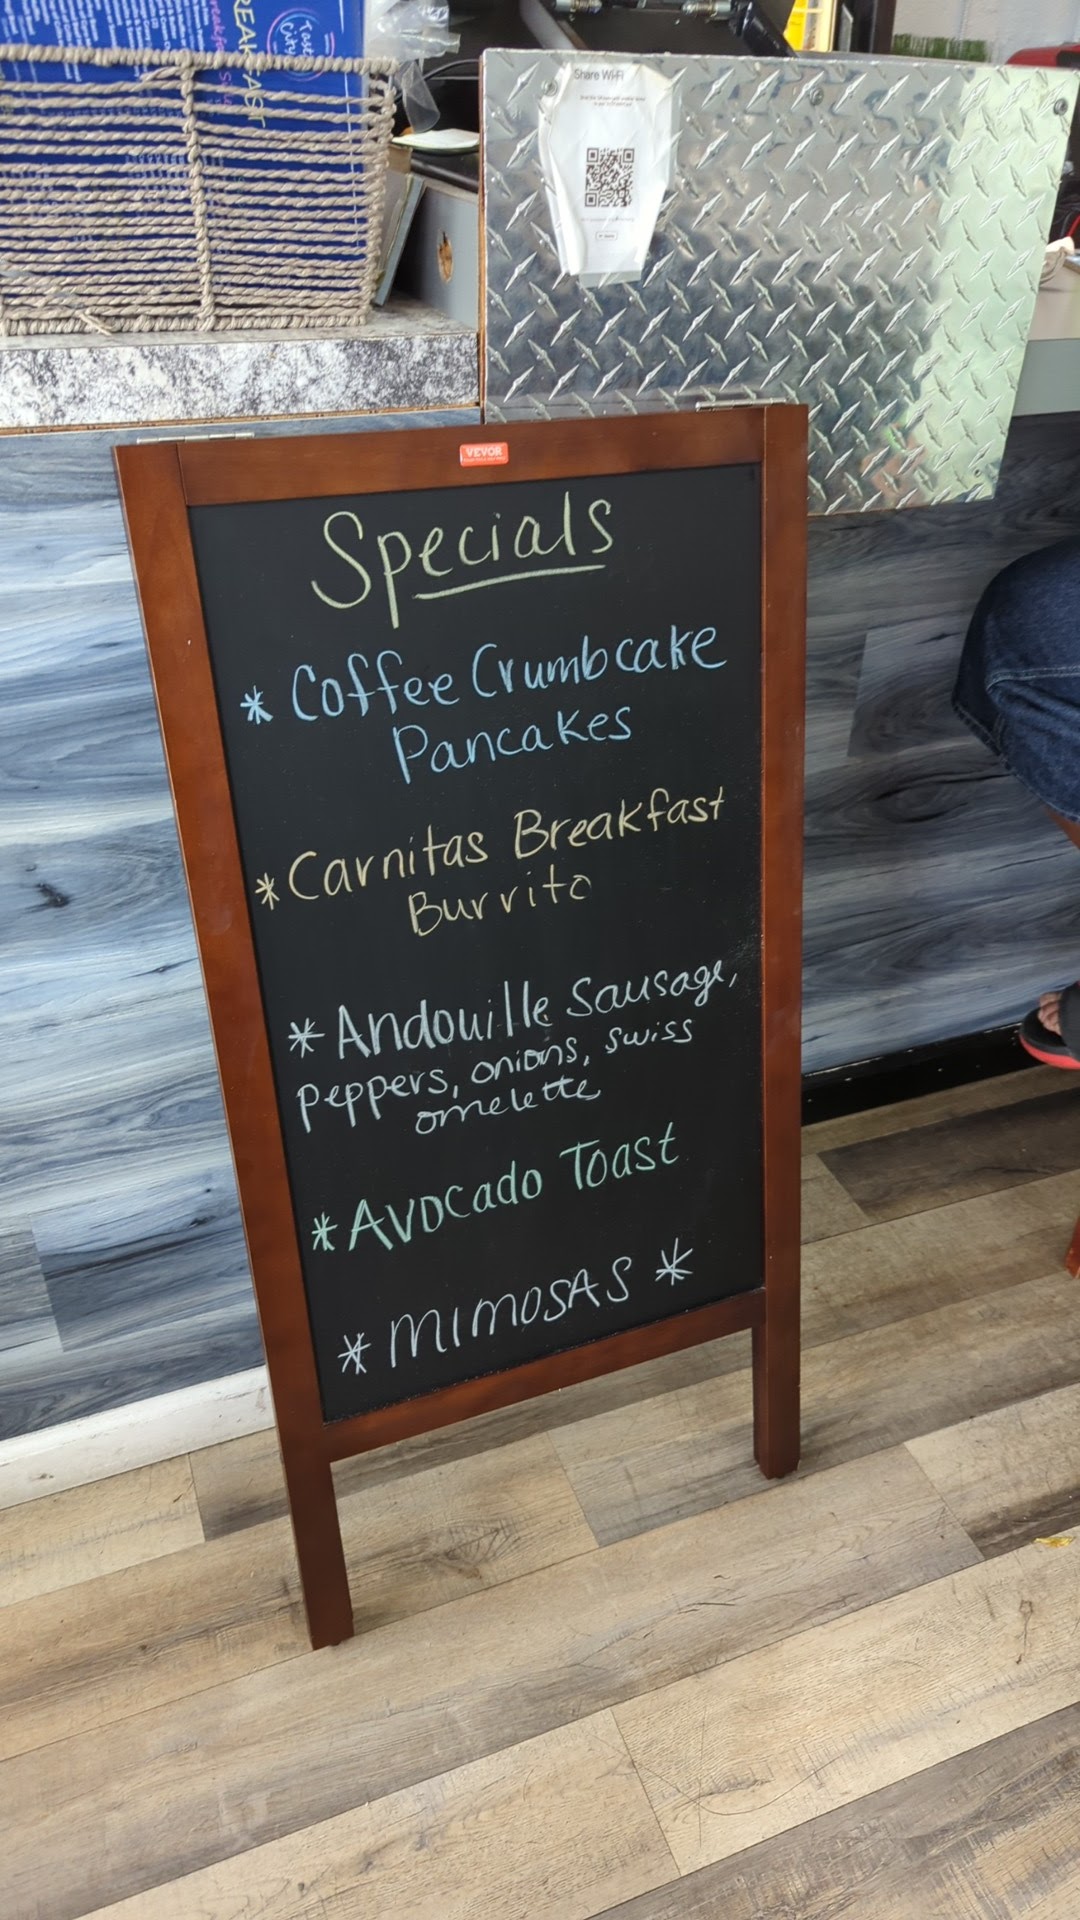 BREAKFAST
Share Wi-Fi
VEVOR
Specials
* Coffee Crumbcake
Pancakes
* Carnitas Breakfast
Burrito
* Andouille Sausage,
peppers, onions, swiss
omelette
* Avocado Toast
* MIMOSAS *